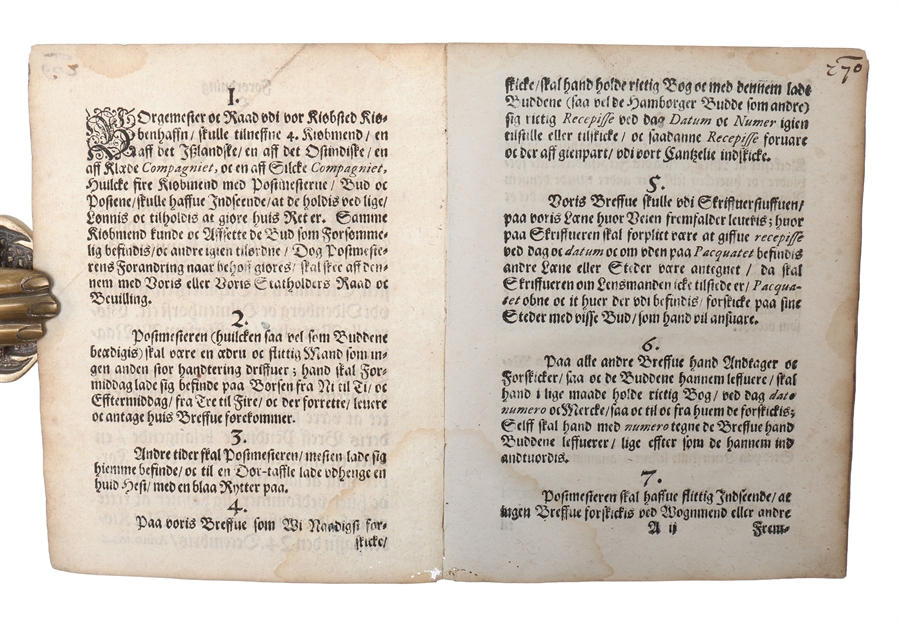 1.
BOrgemester oc Raad vdi vor Kiøbsted Kiø-
benhaffn/ skulle tilneffne 4. Kiøbmend/ en
aff det Ißlandske/ en aff det Ostindiske/ en
aff Klæde Compagniet, oc en aff Silcke Compagniet,
Huilcke fire Kiøbmend med Postmesterne/ Bud oc
Postene/ skulle haffue Indseende/ at de holdis ved lige/
Lønnis oc tilholdis at giøre huis Ret er. Samme
Kiøbmend kunde oc Affsette de Bud som Forsømme-
lig befindis/ oc andre igien tilordne/ Dog Postmeste-
rens Forandring naar behoff giøres/ skal skee aff den-
nem med Voris eller Voris Statholders Raad oc
Bevilling.
2.
Postmesteren (huilcken saa vel som Buddene
beædigis) skal være en ædru oc flittig Mand som in-
gen anden stor handtering driffuer; hand skal For-
middag lade sig befinde paa Børsen fra Ni til Ti/ oc
Efftermiddag/ fra Tre til Fire/ oc der forrette/ levere
oc antage huis Breffue forekommer.
3.
Andre tider skal Postmesteren/ mesten lade sig
hiemme befinde/ oc til en Dør-taffle lade vdhenge en
huid Hest/ med en blaa Rytter paa.
4.
Paa voris Breffue som Wi Naadigst for-
skicke/
270
skicke/ skal hand holde rictig Bog oc med dennem lade
Buddene (saa vel de Hamborger Budde som andre)
sig rictig Recepisse ved dag Datum oc Numer igien
tilstille eller tilskicke/ oc saadanne Recepisse foruare
oc der aff gienpart/ vdi vort Cantzelie indskicke.
5.
Voris Breffue skulle vdi Skriffuerstuffuen/
paa voris Læne huor Veien fremfalder leveris; huor
paa Skriffueren skal forplict være at giffue recepisse
ved dag oc datum oc om vden paa Pacquatet befindis
andre Læne eller Steder være antegnet/ da skal
Skriffueren om Lensmanden icke tilstede er/ Pacqua-
tet obne oc it huer der vdi befindis/ forskicke paa sine
Steder med visse Bud/ som hand vil ansuare.
6.
Paa alle andre Breffue hand Andtager oc
Forskicker/ saa oc de Buddene hannem leffuere/ skal
hand i lige maade holde rictig Bog/ ved dag dato
numero oc Mercke/ saa oc til oc fra huem de forskickis;
Selff skal hand med numero tegne de Breffue hand
Buddene leffuerer/ lige effter som de hannem ind
andtuordis.
7.
Postmesteren skal haffue flittig Indseende/ at
ingen Breffue forskickis ved Wognmend eller andre
A ij Frem-